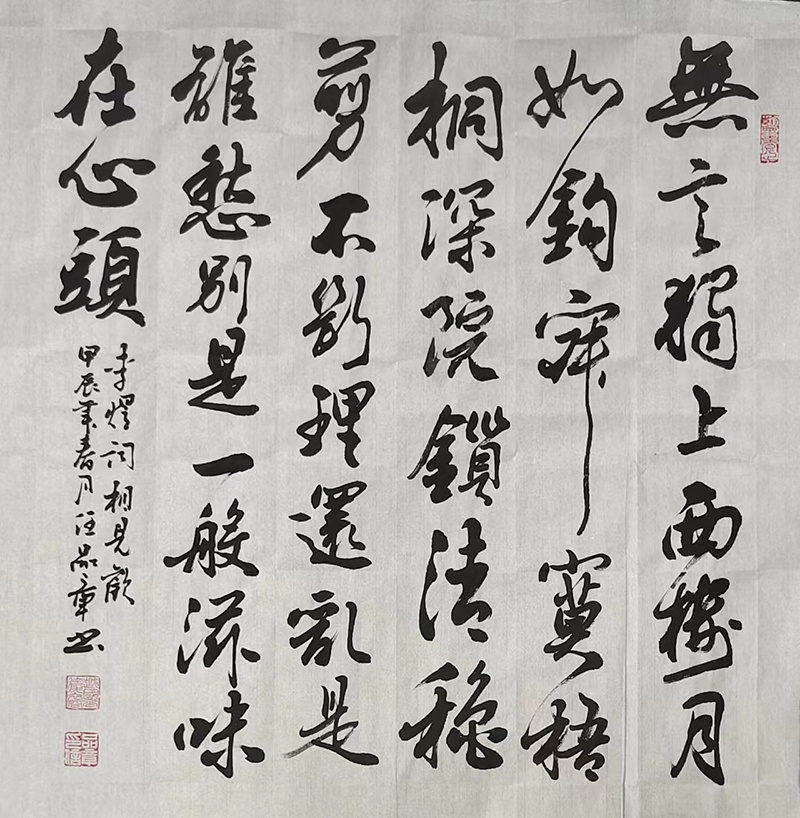 無言獨上西樓月
如鈎寂寞梧
桐深院鎖清穐
剪不斷理還亂是
離愁別是一般滋味
在心頭
李煜詞相見歡
甲辰年春月汪品章书